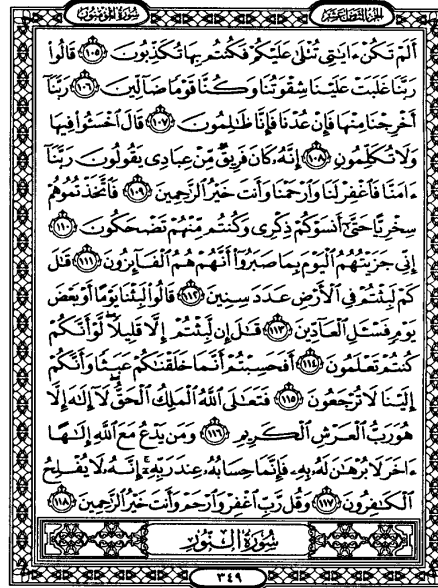 الجزء الثامن عشر
سورة المؤمنون
أَلَمْ تَكُنْ ءَايَٰتِى تُتْلَىٰ عَلَيْكُمْ فَكُنتُم بِهَا تُكَذِّبُونَ ١٠٥ قَالُوا۟
رَبَّنَا غَلَبَتْ عَلَيْنَا شِقْوَتُنَا وَكُنَّا قَوْمًا ضَآلِّينَ ١٠٦ رَبَّنَآ
أَخْرِجْنَا مِنْهَا فَإِنْ عُدْنَا فَإِنَّا ظَٰلِمُونَ ١٠٧ قَالَ ٱخْسَـُٔوا۟ فِيهَا
وَلَا تُكَلِّمُونِ ١٠٨ إِنَّهُۥ كَانَ فَرِيقٌ مِّنْ عِبَادِى يَقُولُونَ رَبَّنَآ
ءَامَنَّا فَٱغْفِرْ لَنَا وَٱرْحَمْنَا وَأَنتَ خَيْرُ ٱلرَّٰحِمِينَ ١٠٩ فَٱتَّخَذْتُمُوهُمْ
سِخْرِيًّا حَتَّىٰٓ أَنسَوْكُمْ ذِكْرِى وَكُنتُم مِّنْهُمْ تَضْحَكُونَ ١١٠
إِنِّى جَزَيْتُهُمُ ٱلْيَوْمَ بِمَا صَبَرُوٓا۟ أَنَّهُمْ هُمُ ٱلْفَآئِزُونَ ١١١ قَٰلَ
كَمْ لَبِثْتُمْ فِى ٱلْأَرْضِ عَدَدَ سِنِينَ ١١٢ قَالُوا۟ لَبِثْنَا يَوْمًا أَوْ بَعْضَ
يَوْمٍ فَسْـَٔلِ ٱلْعَآدِّينَ ١١٣ قَٰلَ إِن لَّبِثْتُمْ إِلَّا قَلِيلًا لَّوْ أَنَّكُمْ
كُنتُمْ تَعْلَمُونَ ١١٤ أَفَحَسِبْتُمْ أَنَّمَا خَلَقْنَٰكُمْ عَبَثًا وَأَنَّكُمْ
إِلَيْنَا لَا تُرْجَعُونَ ١١٥ فَتَعَٰلَى ٱللَّهُ ٱلْمَلِكُ ٱلْحَقُّ لَآ إِلَٰهَ إِلَّا
هُوَ رَبُّ ٱلْعَرْشِ ٱلْكَرِيمِ ١١٦ وَمَن يَدْعُ مَعَ ٱللَّهِ إِلَٰهًا
ءَاخَرَ لَا بُرْهَٰنَ لَهُۥ بِهِۦ فَإِنَّمَا حِسَابُهُۥ عِندَ رَبِّهِۦٓ إِنَّهُۥ لَا يُفْلِحُ
ٱلْكَٰفِرُونَ ١١٧ وَقُل رَّبِّ ٱغْفِرْ وَٱرْحَمْ وَأَنتَ خَيْرُ ٱلرَّٰحِمِينَ ١١٨
سُورَةُ ٱلنُّورِ
٣٤٩